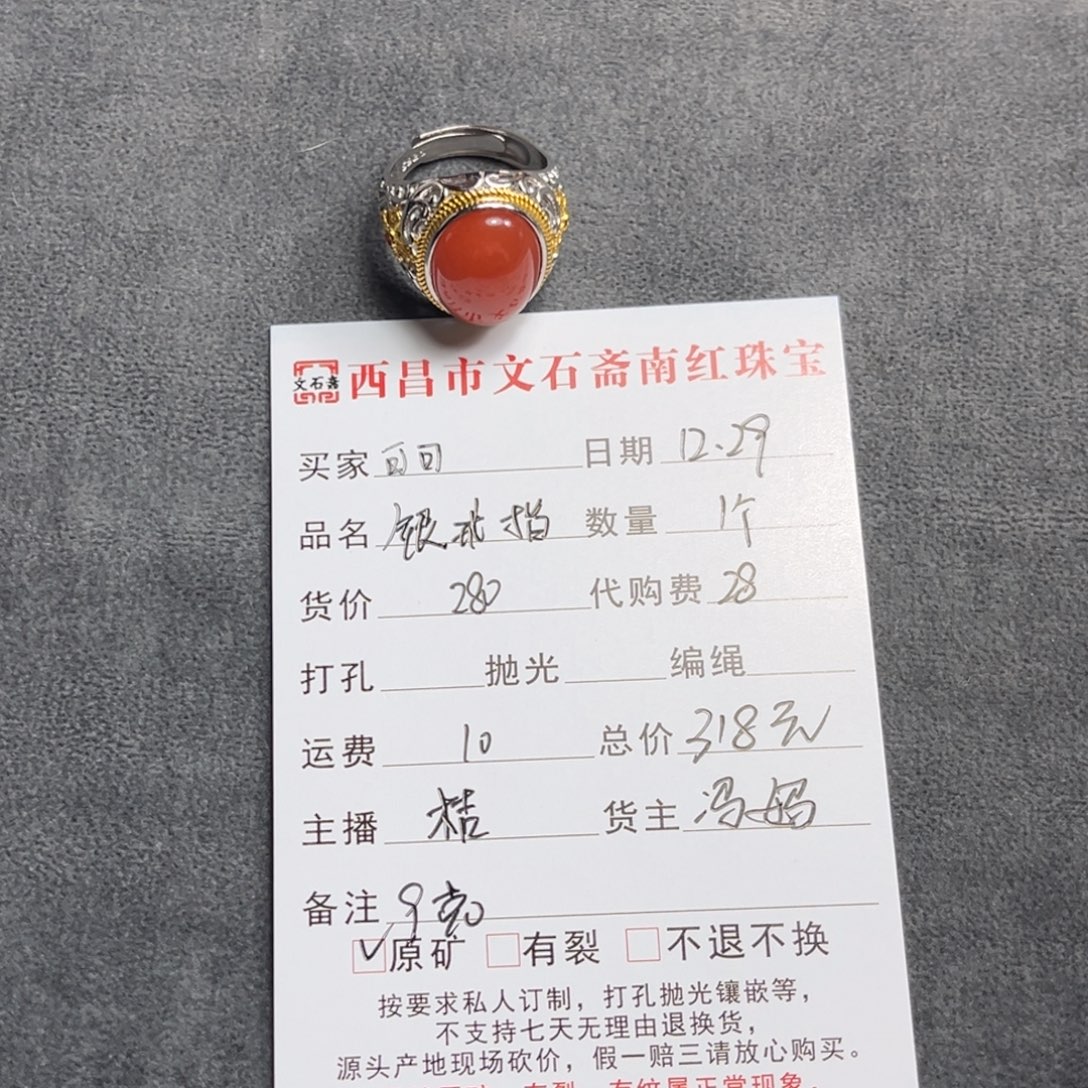 S925
文石斋 西昌市文石斋南红珠宝
买家 可可 日期 12.29
品名 银戒指 数量 1个
货价 280 代购费 28
打孔 抛光 编绳
运费 10 总价 318元
主播 桔 货主 冯妈
备注 9克
✓原矿 □有裂 □不退不换
按要求私人订制，打孔抛光镶嵌等，
不支持七天无理由退换货，
源头产地现场砍价，假一赔三请放心购买。
有裂、有纹属正常现象，